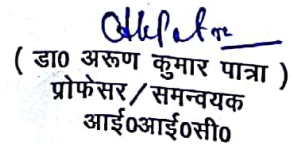 ( डा0 अरूण कुमार पात्रा )
प्रोफेसर/समन्वयक
आई0आई0सी0